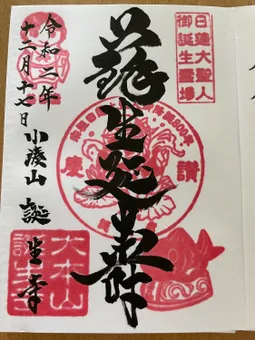 日蓮大聖人
御誕生霊場
蘓生延壽
慶讃
小湊山 誕生寺
令和二年
十二月十七日
大本山
誕生寺